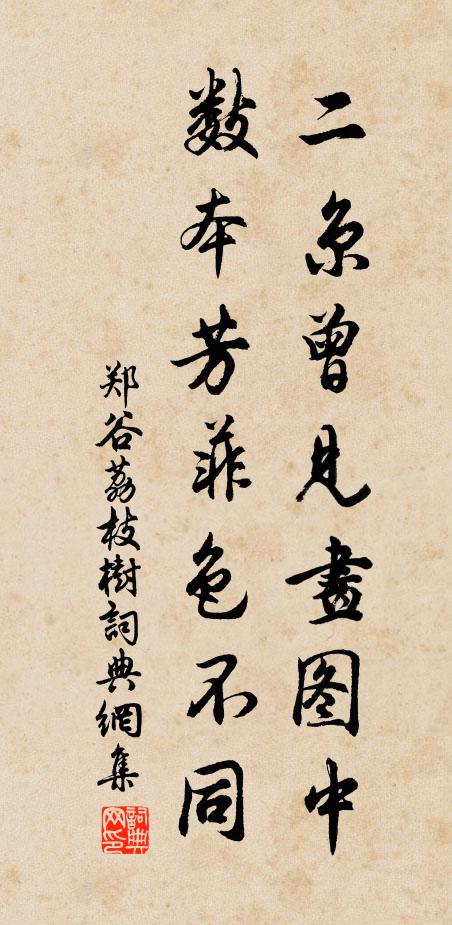 二京曾見畫图中
数本芳菲色不同
郑谷荔枝樹詞典網集
詞典网印